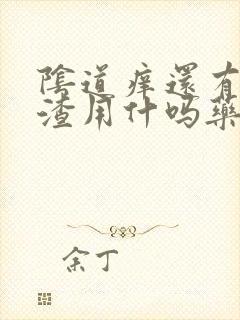 陰道痒還有
渣用什吗藥
余丁